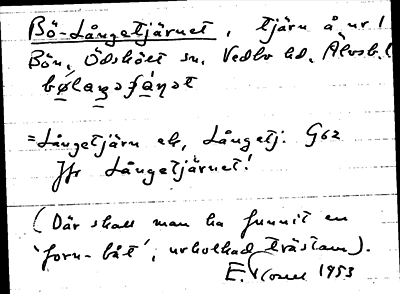 Bö-Långetjärnet, tjärn å nr 1
Bön, Ödskölt sn. Vedbo hd. Älvsb. l
=Långetjärn el. Långetj. G62
Jfr Långetjärnet!
(Där skall man ha funnit en
'forn-båt', urholkad trästam).
E. 1953